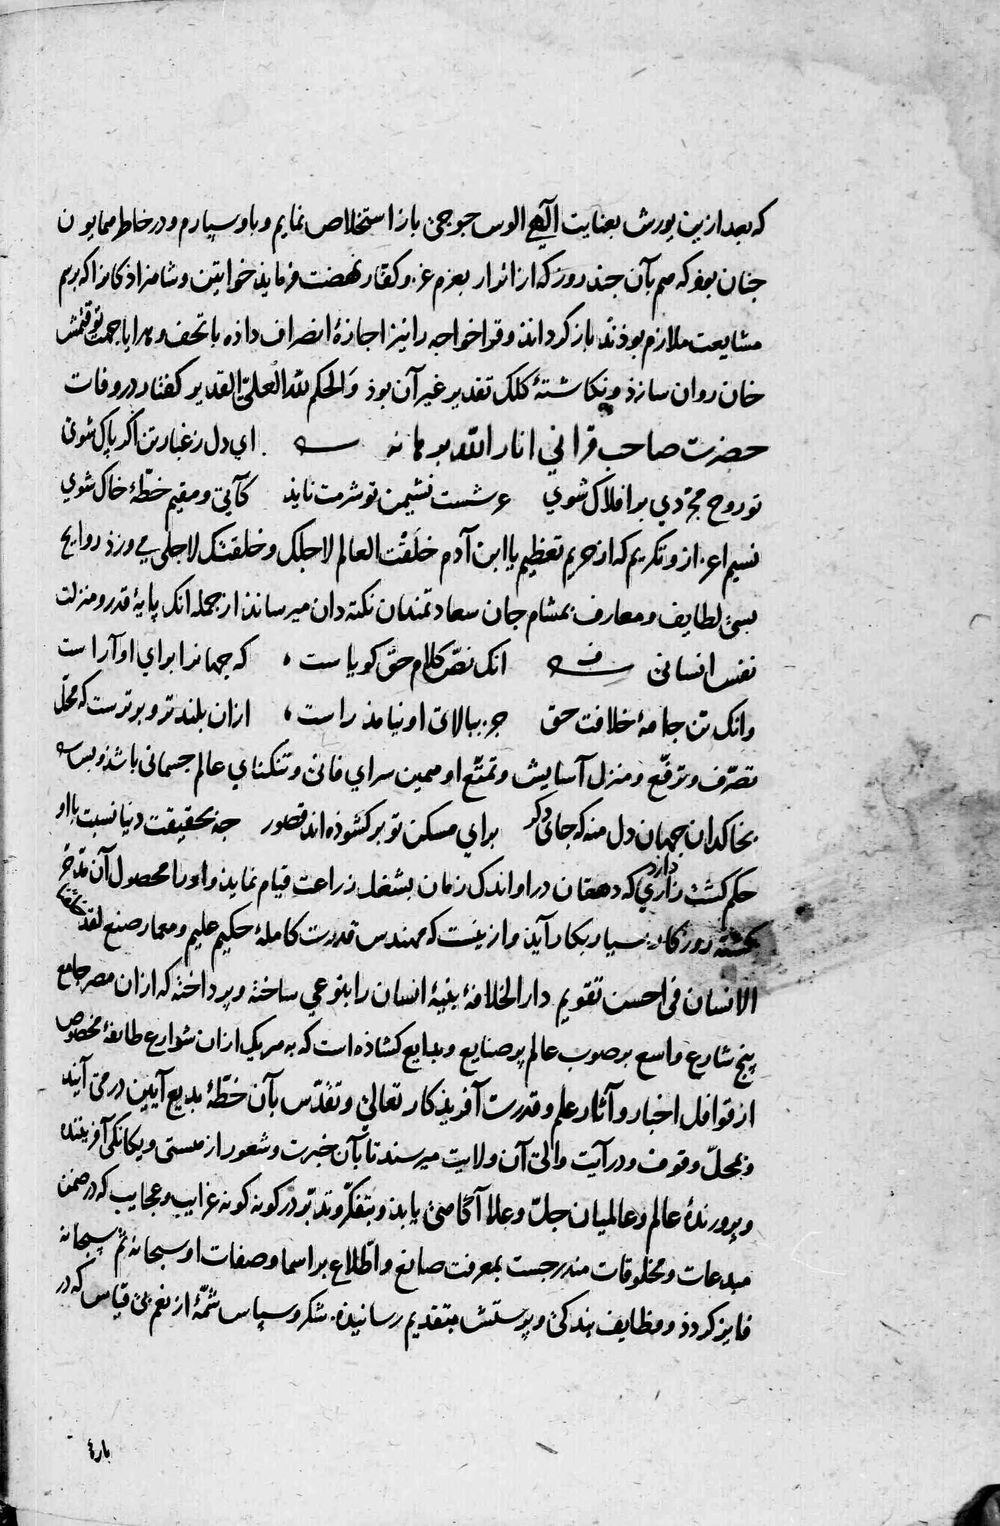 که بعد ازین یورش بعنایت الهی الوس جوجی باز استخلاص نمایم و باو سپارم و در خاطر همایون
جنان بوذ که هم بآن جند روز که از اترار بعزم غزو کفار نهضت فرمایذ خواتین و شاهزاذکانرا که برسم
مشایعت ملازم بوذند باز کرداند و قراخواجه را نیز اجازهٔ انصراف داده با تحف و هدایا بجهت توقتمش
خان روان سازذ و نکاشتهٔ کلک تقدیر غیر آن بوذ والحکم لله العلی القدیر کفتار در وفات
حضرت صاحب قرانی انار الله برهانه ای دل ز غبار تن اکر پاک شوی
تو روح مجردی بر افلاک شوی عرشست نشیمن تو شرمت نایذ کآیی و مقیم خطهٔ خاک شوی
نسیم اعزاز و تکریم که از حریم تعظیم یا ابن آدم خلقت العالم لاجلک و خلقتک لاجلی می وزذ روایح
بسی لطایف و معارف بمشام جان سعادتمندان نکته دان میرساند از جمله انک پایهٔ قدر و منزلت
نفس انسانی انک نص کلام حق کویاست که جهانرا برای او آراست
وانک تن جامهٔ خلافت حق جز ببالای او نیامذ راست ازان بلندتر و برترست که محل
تصرف و ترفع و منزل آسایش و تمتع او همین سرای فانی و تنکنای عالم جسمانی باشذ و بس
بخاکدان جهان دل منه که جای دکر برای مسکن تو برکشوذه اند قصور جه بحقیقت دنیا نسبت با او
حکم کشت زاری دارد که دهقان در او اندک زمان بشغل زراعت قیام نمایذ و او را محصول آن مدخر
کشته روزکار بسیار بکار آیذ و ازینست که مهندس قدرت کاملهٔ حکیم علیم و معمار صنع لقد خلقنا
الانسان فی احسن تقویم دار الخلافهٔ بنیهٔ انسان را بنوعی ساخته و پرداخته که ازان مصر جامع
پنج شارع واسع بر صوب عالم پر صنایع و بدایع کشاذه است که بهر یک ازان شوارع طایفهٔ مخصوص
از قوافل اخبار و آثار علم و قدرت آفریذکار تعالی و تقدس بآن خطهٔ بدیع آیین در می آیند
و بمحل وقوف و درآیت والی آن ولایت میرسند تا بآن خبرت و شعور از هستی و یکانکی آفریننده
و پرورندهٔ عالم و عالمیان جل و علا آکاهی یابذ و بتفکر و تدبر در کونه کونه غرایب و عجایب که در ضمن
مبدعات و مخلوقات مندرجست بمعرفت صانع و اطلاع بر اسما و صفات او سبحانه ثم سبحانه
فایز کردذ و وظایف بندکی و پرستش بتقدیم رسانیذه شکر و سپاس شمهٔ از نعم بی قیاس که در
بارهٔ